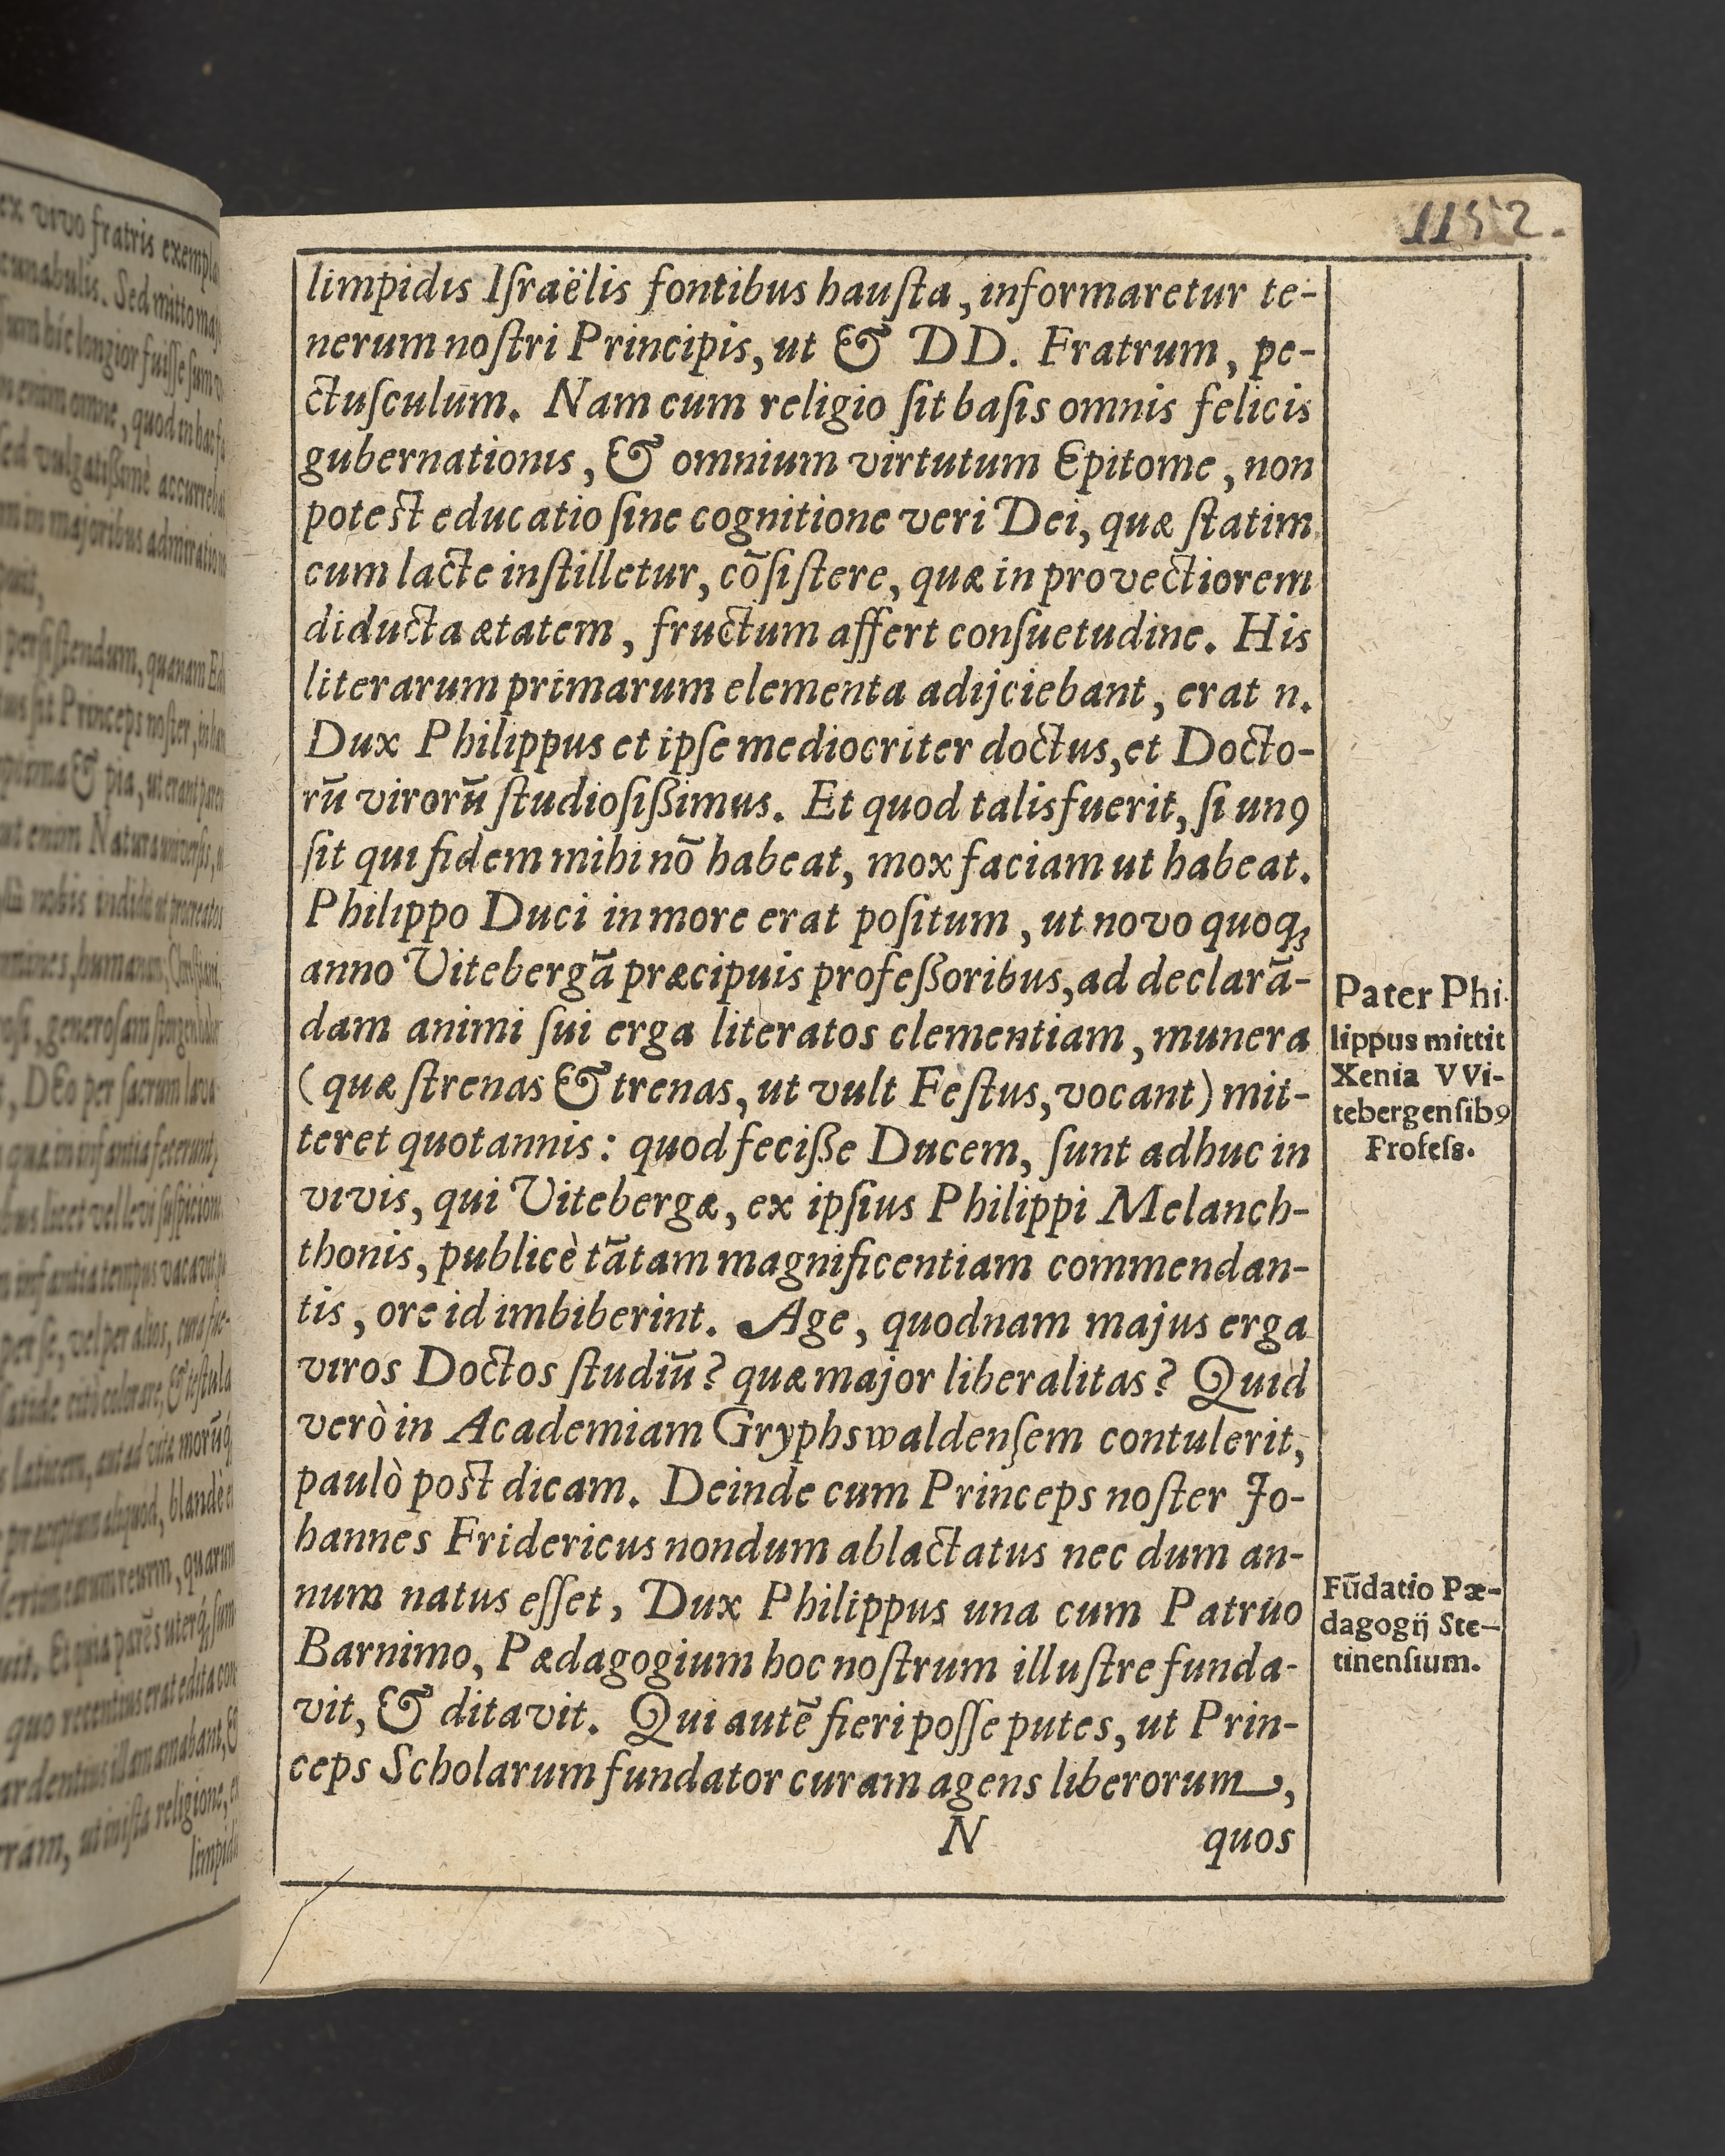 limpidis Iſraëlis fontibus hauſta, informaretur te-
nerum noſtri Principis, ut & DD. Fratrum, pe-
ctuſculum. Nam cum religio ſit baſis omnis felicis
gubernationis, & omnium virtutum Epitome, non
poteſt educatio ſine cognitione veri Dei, quæ ſtatim
cum lacte inſtilletur, cõſiſtere, quæ in provectiorem
diducta ætatem, fructum affert conſuetudine. His
literarum primarum elementa adijciebant, erat n.
Dux Philippus et ipſe mediocriter doctus, et Docto-
rū virorū ſtudioſißimus. Et quod talis fuerit, ſi unꝯ
ſit qui fidem mihi nō habeat, mox faciam ut habeat.
Philippo Duci in more erat poſitum, ut novo quoq;
anno Vitebergā præcipuis profeßoribus, ad declarā-
dam animi ſui erga literatos clementiam, munera
(quæ ſtrenas & trenas, ut vult Feſtus, vocant) mit-
teret quotannis: quod feciße Ducem, ſunt adhuc in
vivis, qui Vitebergæ, ex ipſius Philippi Melanch-
thonis, publicè tātam magnificentiam commendan-
tis, ore id imbiberint. Age, quodnam majus erga
viros Doctos ſtudiū? quæ major liberalitas? Quid
verò in Academiam Gryphswaldenſem contulerit,
paulò poſt dicam. Deinde cum Princeps noſter Jo-
hannes Fridericus nondum ablactatus nec dum an-
num natus eſſet, Dux Philippus una cum Patruo
Barnimo, Pædagogium hoc noſtrum illuſtre funda-
vit, & ditavit. Qui autē fieri poſſe putes, ut Prin-
ceps Scholarum fundator curam agens liberorum,
N quos
Pater Phi-
lippus mittit
Xenia VVi-
tebergenſibꝯ
Profeſs.
Fūdatio Pæ-
dagogij Ste-
tinenſium.